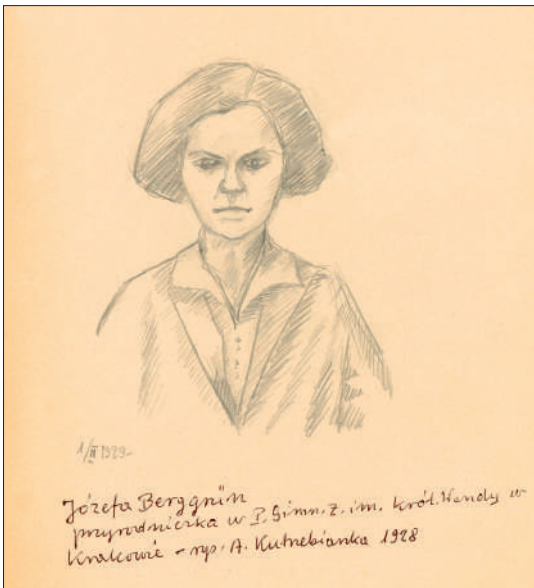 1/II 1929-
Józefa Berggrün
przyrodniczka w P. Gimn. Ż. im. król. Wandy w
Krakowie - rys. A. Kutrebianka 1928